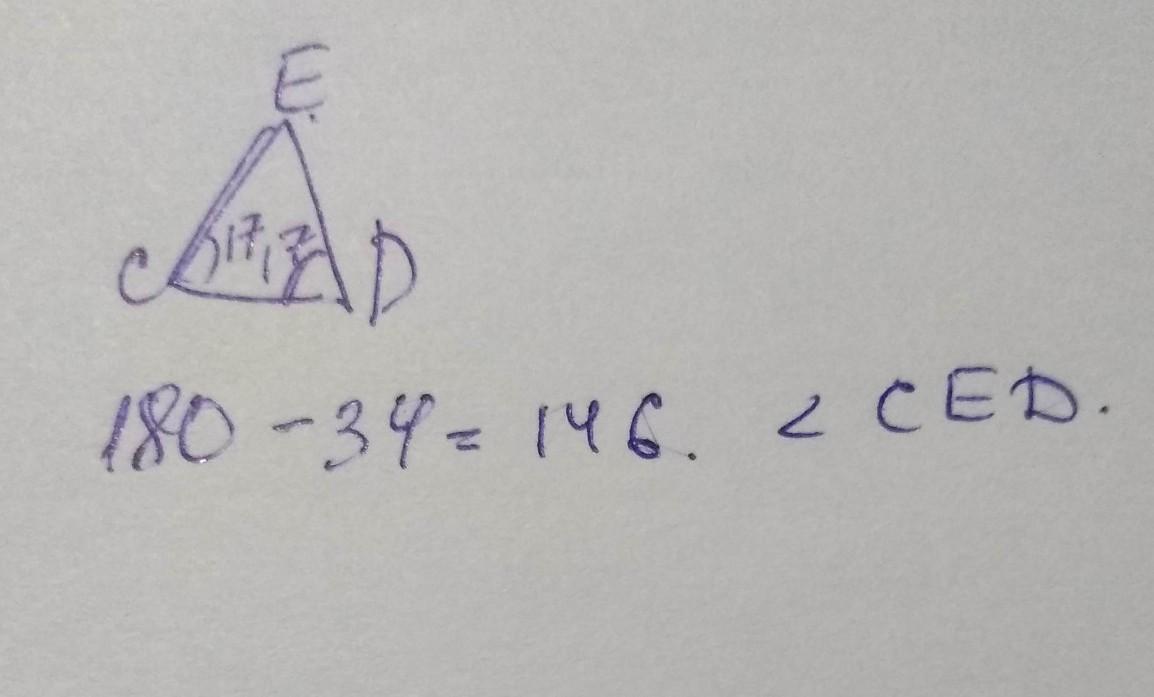 E
C 17, 17 D
180 - 34 = 146. < CED.